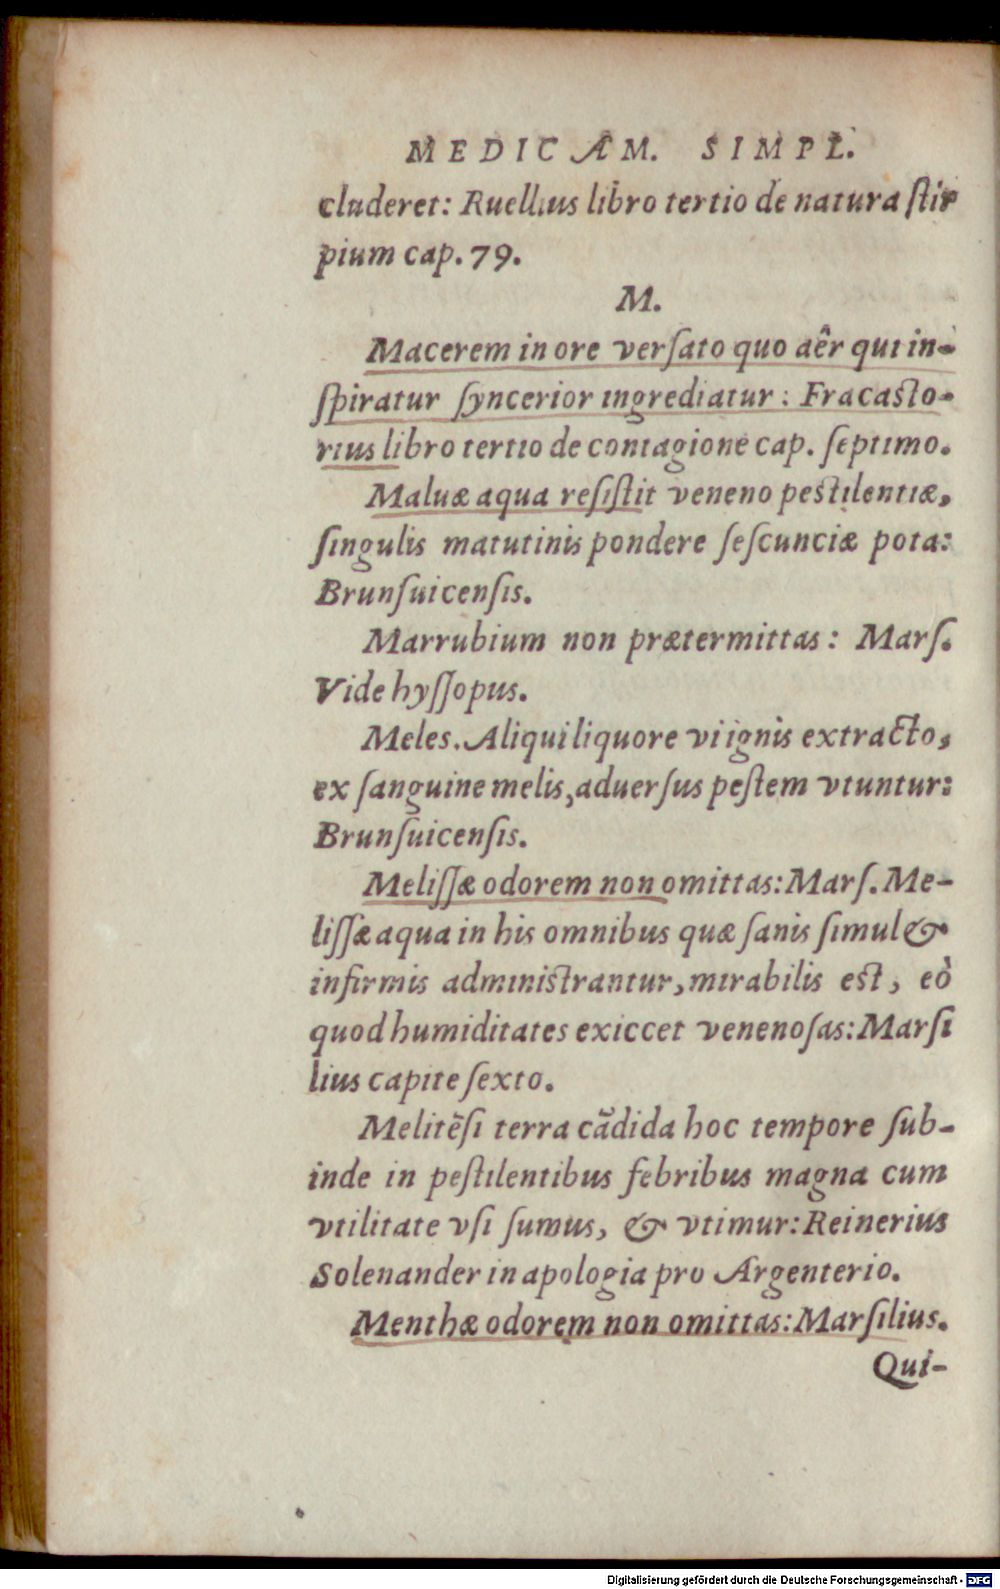 MEDICAM. SIMPL.
cluderet: Ruellius libro tertio de natura ſtir
pium cap. 79.
M.
Macerem in ore verſato quo aêr qui in-
ſpiratur ſyncerior ingrediatur: Fracaſto-
rius libro tertio de contagione cap. ſeptimo.
Maluæ aqua reſiſtit veneno peſtilentiæ,
ſingulis matutinis pondere ſeſcunciæ pota:
Brunſuicenſis.
Marrubium non prætermittas: Marſ.
Vide hyſſopus.
Meles. Aliqui liquore vi ignis extracto,
ex ſanguine melis, aduerſus peſtem vtuntur:
Brunſuicenſis.
Meliſſæ odorem non omittas: Marſ. Me-
liſſæ aqua in his omnibus quæ ſanis ſimul &
infirmis adminiſtrantur, mirabilis eſt, eò
quod humiditates exiccet venenoſas: Marſi
lius capite ſexto.
Melitẽſi terra cãdida hoc tempore ſub-
inde in peſtilentibus febribus magna cum
vtilitate vſi ſumus, & vtimur: Reinerius
Solenander in apologia pro Argenterio.
Menthæ odorem non omittas: Marſilius.
Qui-
Digitalisierung gefördert durch die Deutsche Forschungsgemeinschaft - DFG